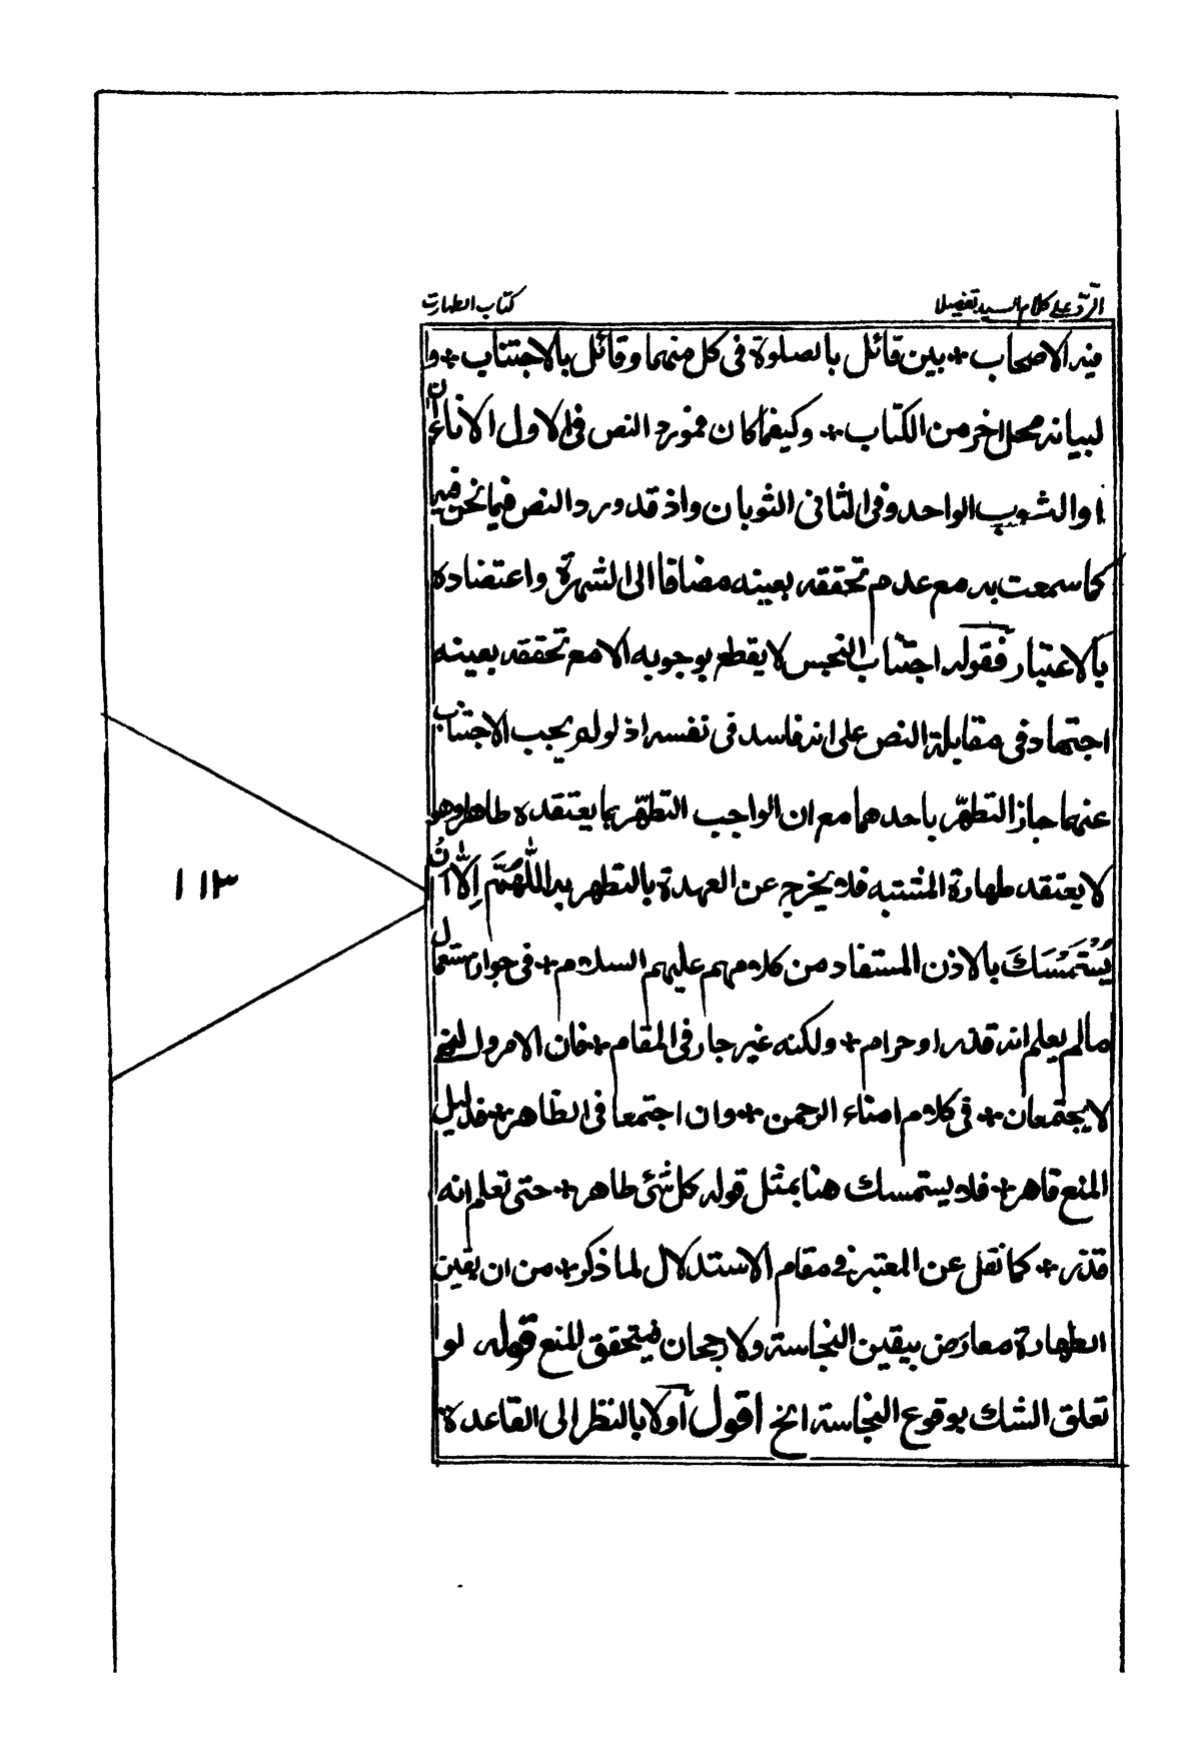 الرّد علی کلام السید تفصیلا
کتاب الطهارت
فیه الاصحاب + بین قائل بالصلوة فی کل منهما وقائل بالاجتناب + و
لبیانه محل اخر من الکتاب + وکیفما کان فمورد النص فی الاول الاناءان
اوالثوب الواحد وفی الثانی الثوبان واذ قد ورد النص فیما نحن فیه
کما سمعت به مع عدم تحققه بعینه مضافا الی الشهرة واعتضاده
بالاعتبار فقوله اجتناب النجس لا یقطع بوجوبه الا مع تحققه بعینه
اجتهاد فی مقابلة النص علی انه فاسد فی نفسه اذ لو لم یجب الاجتناب
عنهما جاز التطهّر باحدهما مع ان الواجب التطهّر بما یعتقده طاهرا وهو
لا یعتقد طهارة المشتبه فلا یخرج عن العهدة بالتطهر به اللّٰهُمَّ اِلَّا اَنْ
یُسْتَمْسَكَ بالاذن المستفاد من کلامهم علیهم السلام + فی جواز استعمال
مالم یعلم انه قذر او حرام + ولکنه غیر جار فی المقام + فان الامر والنهی
لا یجتمعان + فی کلام امناء الرحمن + وان اجتمعا فی الظاهر + فدلیل
المنع قاهر + فلا یستمسك هنا بمثل قوله کل شئ طاهر + حتی تعلم انه
قذر + کما نقل عن المعتبر فی مقام الاستدلال لما ذکر + من ان یقین
الطهارة معارض بیقین النجاسة ولا رجحان فیتحقق المنع قوله لو
تعلق الشك بوقوع النجاسة الخ اقول اولا بالنظر الی القاعدة
۱۱۳